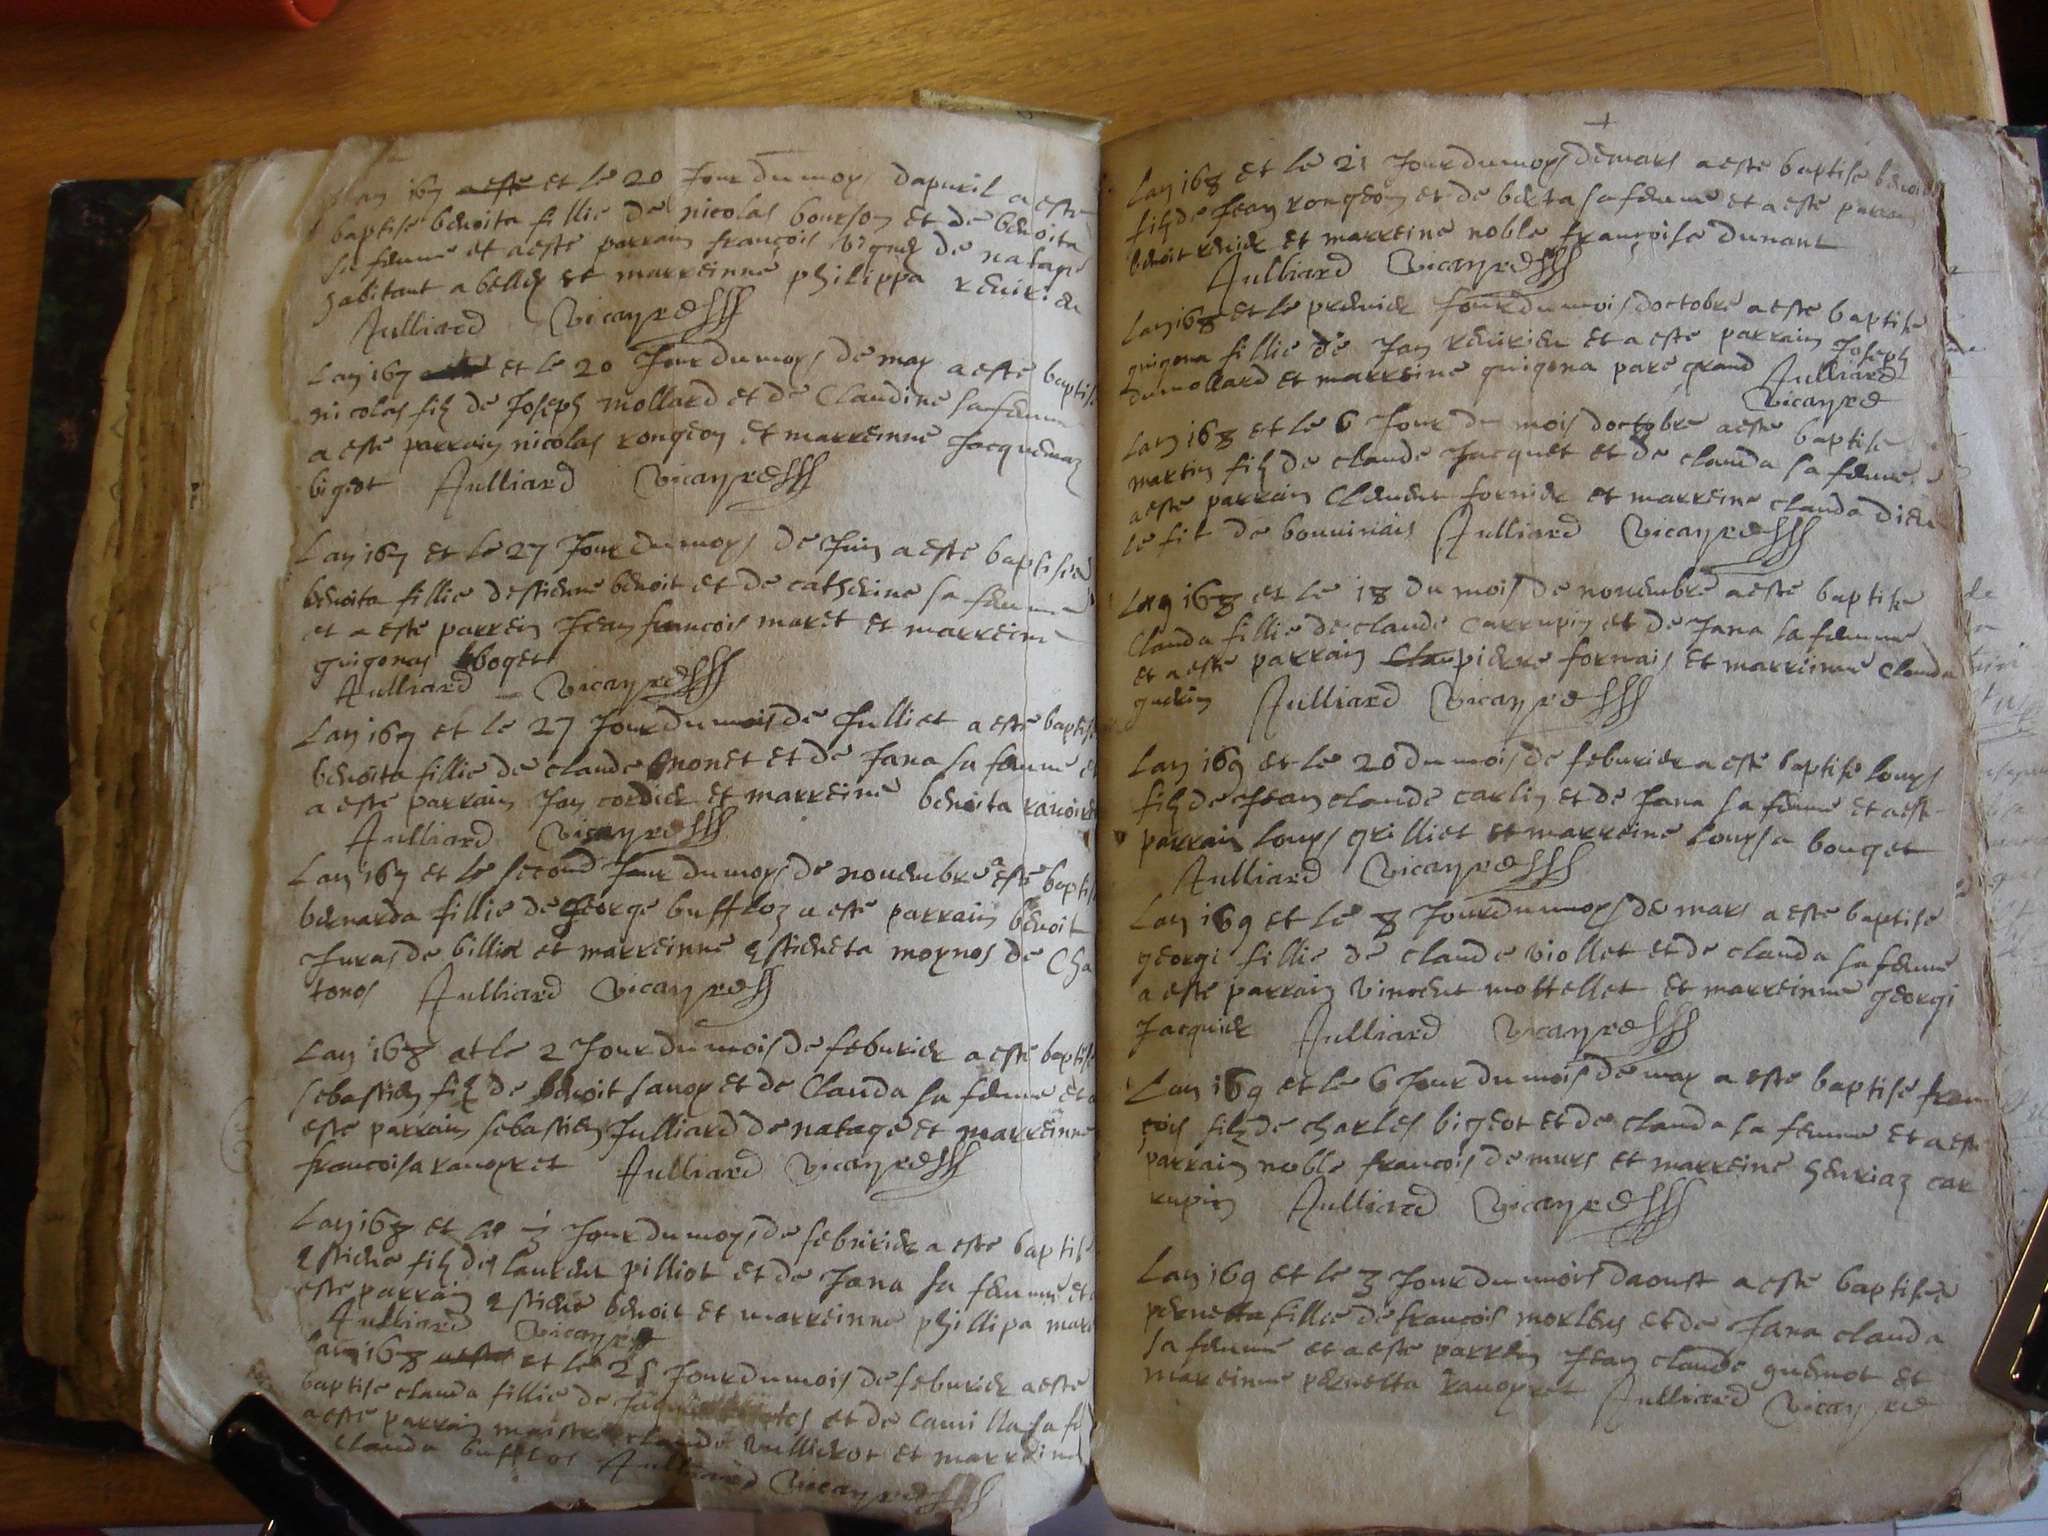 Lan 167 aeste et le 20 Jour du moys dapuril a este
baptise benoita fillie de nicolas bourson et de benoita
sa femme et a este parrain françois de natage
habitant a belley et marreinne philippa reuirieu
Julliard vicayre
Lan 167 et le 20 Jour du moys de may a este baptise
nicolas filz de Joseph mollard et de Claudine sa femme
a este parrain nicolas rongeon et marreinne Jacquemaz
bigeot Julliard vicayre
Lan 167 et le 27 Jour du moys de Juin a este baptisee
benoita fillie destienne benoit et de catherine sa femme
et a este parrein Jean francois maret et marreine
guigonas boget
Julliard vicayre
Lan 167 et le 27 Jour du mois de Julliet a este baptise
benoita fillie de claude monet et de Jana sa femme et
a este parrain Jan cordier et marreine benoita
Julliard vicayre
Lan 167 et le second Jour du moys de nouembre a este baptise
bernarda fillie de george buffloz a este parrain benoit
Juras de billie et marreinne estieneta moynos de Cha
tonos Julliard vicayre
Lan 168 at le 2 Jour du mois de feburier a este baptise
sebastien filz de benoit sauoy et de Clauda sa femme et a
este parrain sebastien Julliard de natage et marreinne
francoisa rauoyret Julliard vicayre
Lan 168 et le 3 Jour du moys de feburier a este baptise
estiene filz de laurent pilliot et de Jana sa femme et a
este parrain estiene benoit et marreinne phillipa mare
Julliard vicayre
Lan 168 aeste et le 25 Jour du mois de feburier a este
baptise clauda fillie de et de Camilla sa fe
a este parrain maistre claude vullierot et marreine
clauda bufflos Julliard vicayre
Lan 168 et le 21 Jour du moys de mars a este baptise benoit
filz de Jean rongeon et de berta sa femme et a este parrain
benoit renier et marreine noble françoise dunant
Julliard vicayre
Lan 168 et le premier Jour du mois doctobre a este baptise
guigona fillie de Jan reuirieu et a este parrain Joseph
dumollard et marreine guigona pare grand Julliard
vicayre
Lan 168 et le 6 Jour du mois doctobre a este baptise
martin filz de claude Jacquet et de clauda sa femme
a este parrain Clement fornier et marreine clauda dieu
le fit de bouuinais Julliard vicayre
Lan 168 et le 18 du mois de nouembre a este baptise
Clauda fillie de claude Carrupin et de Jana sa femme
et a este parrain Clau pierre fornais et marreinne Clauda
guerin Julliard vicayre
Lan 169 et le 20 du mois de feburier a este baptise louys
filz de Jean claude carlin et de Jana sa femme et a este
parrain louys grilliet et marreine louysa bouget
Julliard vicayre
Lan 169 et le 8 Jour du moys de mars a este baptise
georgi fillie de claude viollet et de clauda sa femme
a este parrain vincent mottellet et marreinne georgi
Jacquier Julliard vicayre
Lan 169 et le 6 Jour du mois de may a este baptise fran
çois filz de charles bigeot et de clauda sa femme et a este
parrain noble francois de murs et marreine henriaz car
rupin Julliard vicayre
Lan 169 et le 3 Jour du mois daoust a este baptisee
pernetta fillie de francois morlens et de Jana clauda
sa femme et a este parrein Jean claude guemot et
mareinne pernetta rauoyret Julliard vicayre